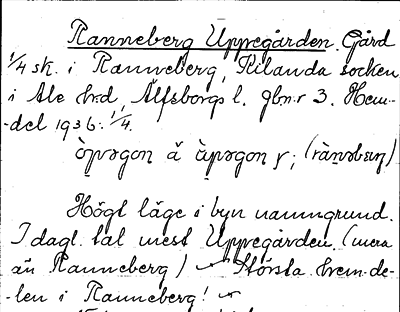 Ranneberg Uppegården. Gård
1/4 sk. i Ranneberg, Kilanda socken
i Ale hrd, Älfsborgs l. gbn.r 3. Hem-
-del 1936: 1/4.
Högt läge i byn namngrund.
I dagl. tal mest Uppegården. (mera
än Ranneberg) Största hem.de-
-len i Ranneberg!